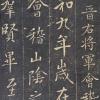 晉右將軍會
和九年歲在
會稽山陰之
賢畢至